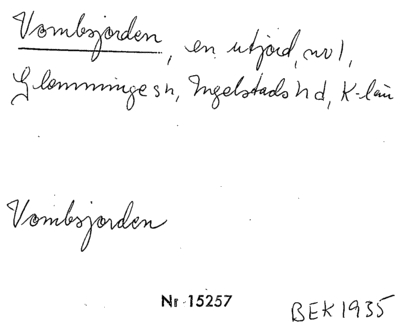 Vombsjorden, en utjord, nr 1,
Glemminge sn, Ingelstads hd, K-län
Vombsjorden
Nr 15257
BEK 1935